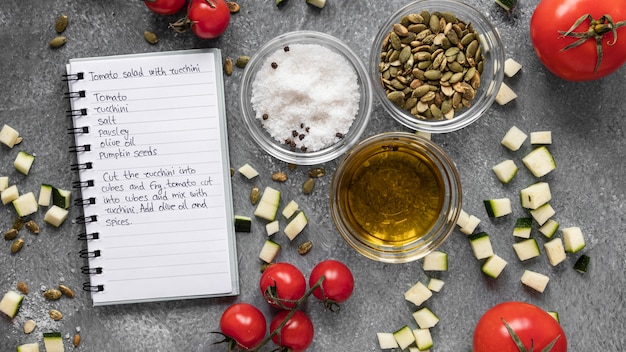 Tomato salad with zucchini
Tomato
zucchini
salt
parsley
olive oil
Pumpkin seeds
Cut the zucchini into
cubes and fry, tomato cut
into cubes and mix with
zucchini. Add olive oil and
spices.